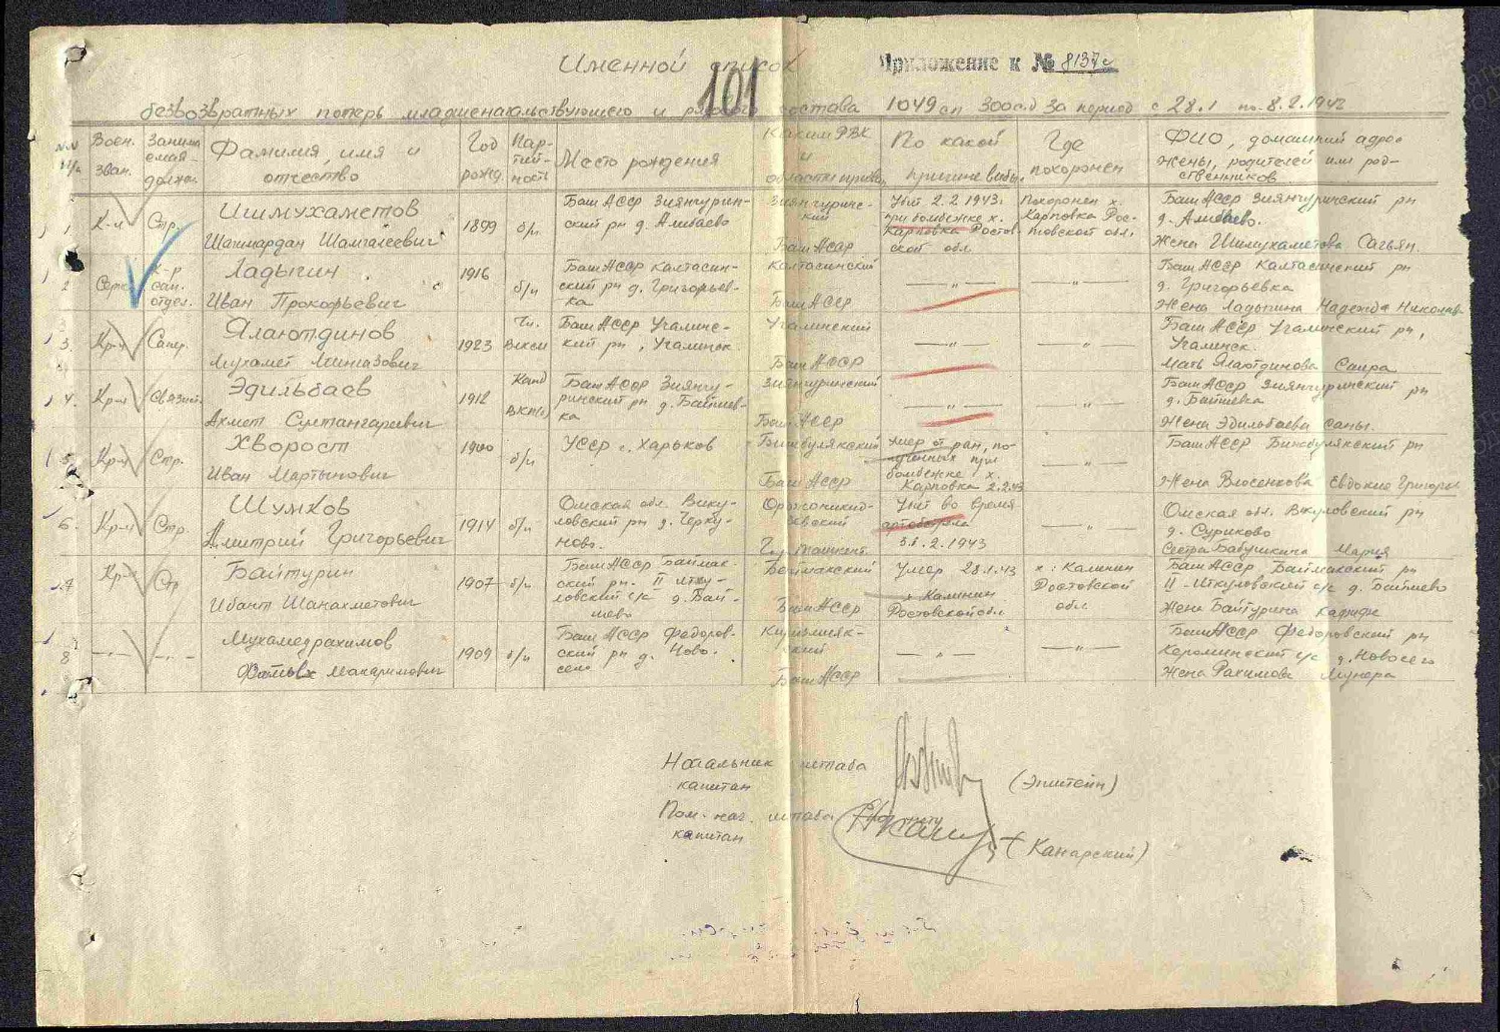 Именной список
Приложение к № 8137с
101
безвозвратных потерь младшеначальствующего и рядового состава 1049 сп 300 с.д за период с 28.1 по 8.2.1943
№№ п/п Воен. зван. Занимаемая должн. Фамилия, имя и отчество Год рожд. Партийность Место рождения Каким РВК и области призван По какой причине выбыл Где похоронен ФИО, домашний адрес жены, родителей или родственников
1 К-ц Стр. Ишмухаметов Шаймардан Шамгалеевич 1899 б/п Баш АССР Зиянчуринский рн д. Алибаево Зиянчуринский Баш АССР Убит 2.2.1943. при бомбежке х. Карповка Ростовской обл. Похоронен х. Карповка Ростовской обл. Баш АССР Зиянчуринский рн д. Алибаево. Жена Ишмухаметова
2 К-р сан. отдел. Ладыгин Иван Прокофьевич 1916 б/п Баш АССР Калтасинский рн д. Григорьевка Калтасинский Баш АССР —„— —„— Баш АССР Калтасинский рн д. Григорьевка Жена Ладыгина Надежда Николаев
3. Кр-ц Сапер. Ялаютдинов Мухамет 1923 Чл. ВЛКСМ Баш АССР Учалинский рн, Учалинск. Учалинский Баш АССР —„— —„— Баш АССР Учалинский рн, Учалинск. Мать Ялаютдинова Саира
4. Кр-ц Связист. Эдильбаев Ахмет Султангареевич 1912 Канд ВКП(б) Баш АССР Зиянчуринский рн д. Байшевка Зиянчуринский Баш АССР —„— —„— Баш АССР Зиянчуринский рн д. Байшевка Жена Эдильбаева
5 Кр-ц Стр. Хворост Иван Мартынович 1900 б/п УССР г. Харьков Бижбулякский Баш АССР умер от ран, полученных при бомбежке х. Карповка 2.2.43 —„— Баш АССР Бижбулякский рн Жена Власенкова Евдокия Григорь
6. Кр-ц Стр Шумков Дмитрий Григорьевич 1914 б/п Омская обл. Викуловский рн д. Черкуново. Орджоникидзевский Гор. Ташкент Убит во время артобстрела 2.1943 —„— Омская обл. Викуловский рн д. Суриково Сестра Бабушкина Мария
7 Кр-ц Стр Байтурин Ибает Шанахметович 1907 б/п Баш АССР Баймакский рн. II Иткуловский с/с д. Байшево Баймакский Баш АССР Умер 28.1.43 х Калинин Ростовской обл х. Калинин Ростовской обл. Баш АССР Баймакский рн II-Иткуловский с/с д. Байшево Жена Байтурина
8 —„— —„— Мухамедрахимов Макаримович 1909 б/п Баш АССР Федоровский рн д. Новосело Баш АССР —„— —„— Баш АССР Федоровский рн с/с д. Новосело Жена Рахимова Мунера
Начальник штаба
капитан (Эпштейн)
Пом. нач. штаба
капитан (Канарский)